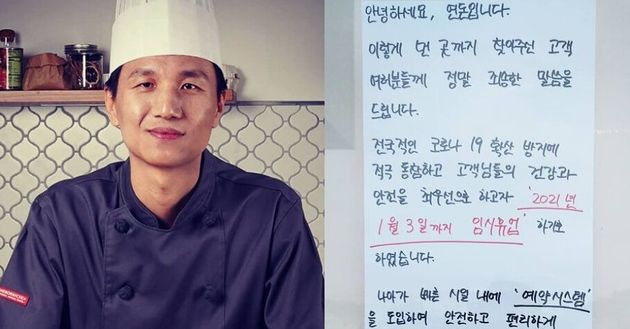 안녕하세요, 연돈입니다.
이렇게 먼 곳까지 찾아주신 고객
여러분들께 정말 죄송한 말씀을
드립니다.
전국적인 코로나 19 확산 방지에
적극 동참하고 고객님들의 건강과
안전을 최우선으로 하고자 '2021년
1월 3일까지 임시휴업' 하기로
하였습니다.
나아가 빠른 시일 내에 '예약시스템'
을 도입하여 안전하고 편리하게